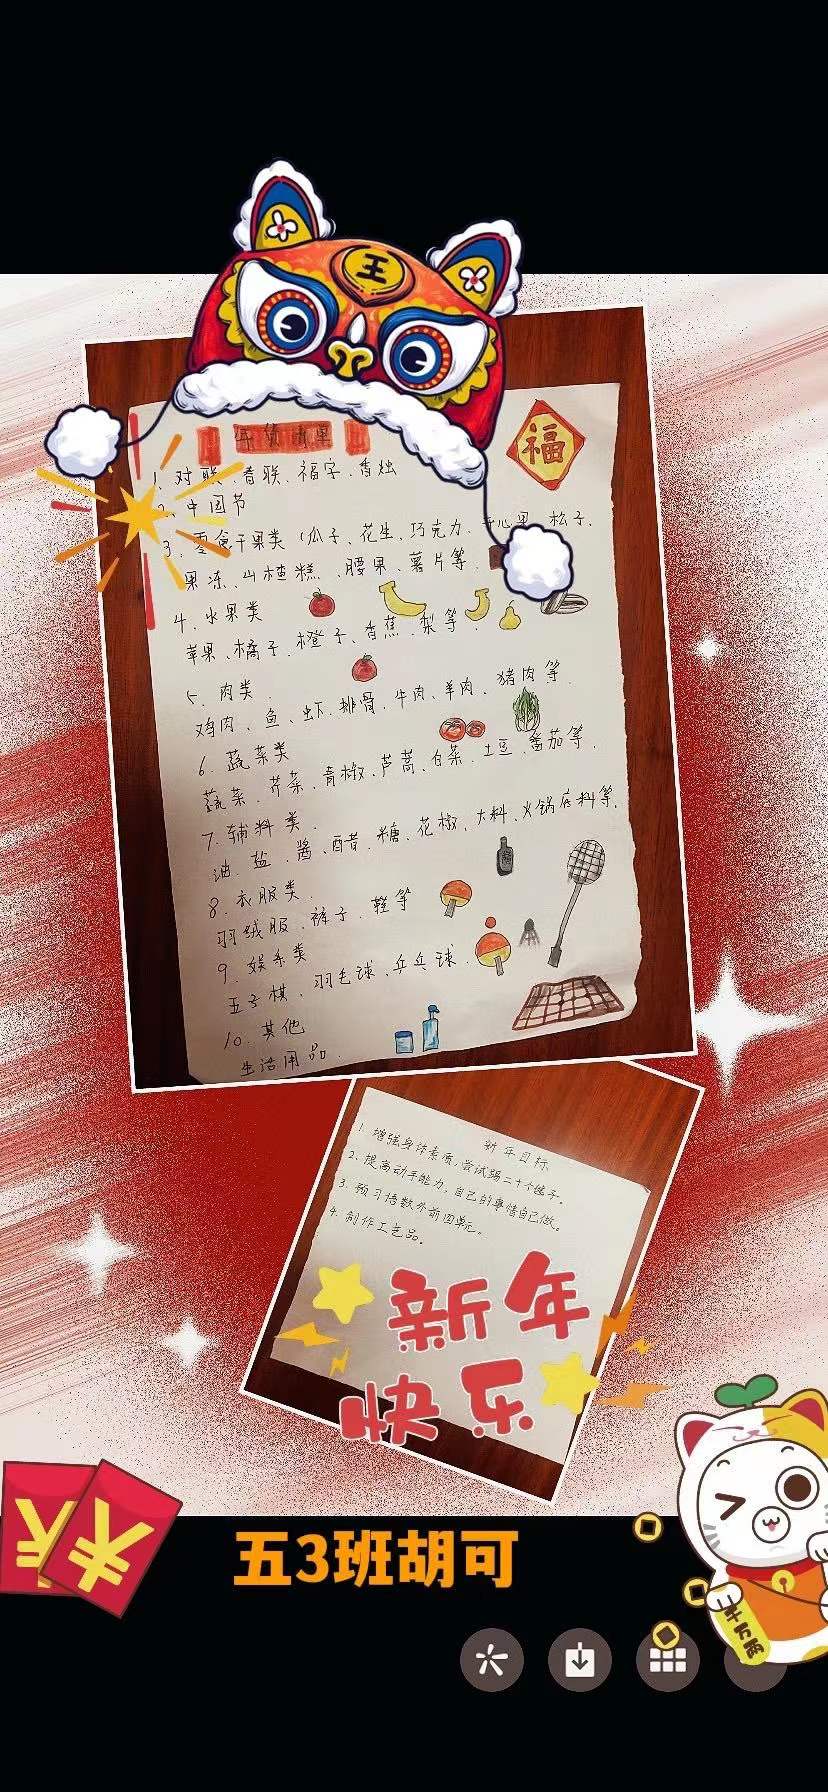 王
年货清单
福
1、对联、春联、福字、香烛
2、中国节
3、零食干果类（瓜子、花生、巧克力、开心果、松子、
果冻、山楂糕、腰果、薯片等、
4、水果类
苹果、橘子、橙子、香蕉、梨等、
5、肉类、
鸡肉、鱼、虾、排骨、牛肉、羊肉、猪肉等、
6、蔬菜类
蔬菜、芹菜、青椒、芦蒿、白菜、土豆、番茄等、
7、辅料类、
油、盐、酱、醋、糖、花椒、大料、火锅底料等、
8、衣服类、
羽绒服、裤子、鞋等
9、娱乐类
五子棋、羽毛球、乒乓球、
10、其他
生活用品、
新年目标
1、增强身体素质，尝试踢二十个毽子。
2、提高动手能力，自己的事情自己做。
3、预习语数外前四单元。
4、制作工艺品。
新年
快乐
五3班胡可
千万两